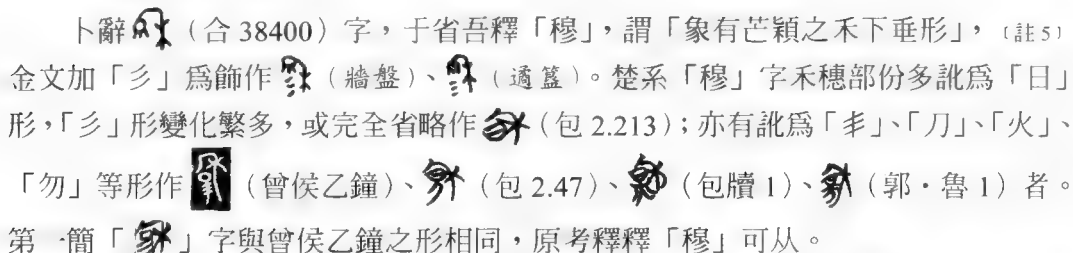 卜辭（合 38400）字，于省吾釋「穆」，謂「象有芒穎之禾下垂形」，〔註5〕
金文加「彡」爲飾作（牆盤）、（遹簋）。楚系「穆」字禾穗部份多訛爲「日」
形，「彡」形變化繁多，或完全省略作（包 2.213）；亦有訛爲「丯」、「刀」、「火」、
「勿」等形作（曾侯乙鐘）、（包 2.47）、（包牘 1）、（郭．魯 1）者。
第一簡「」字與曾侯乙鐘之形相同，原考釋釋「穆」可从。